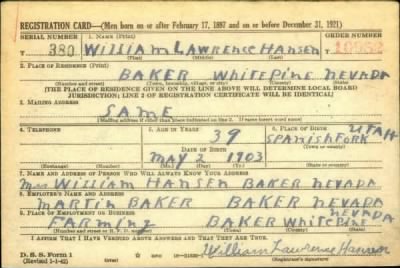 REGISTRATION CARD—(Men born on or after February 17, 1897 and on or before December 31, 1921)
SERIAL NUMBER 1. NAME (Print) ORDER NUMBER
T 380 WILLIAM LAWRENCE HANSEN
(First) (Middle) (Last)
2. PLACE OF RESIDENCE (Print)
BAKER White Pine NEVADA
(Number and street) (Town, township, village, or city) (County) (State)
[THE PLACE OF RESIDENCE GIVEN ON THE LINE ABOVE WILL DETERMINE LOCAL BOARD
JURISDICTION; LINE 2 OF REGISTRATION CERTIFICATE WILL BE IDENTICAL]
3. MAILING ADDRESS
SAME
[Mailing address if other than place indicated on line 2. If same insert word same]
4. TELEPHONE 5. AGE IN YEARS 6. PLACE OF BIRTH
39 SPANISH FORK
UTAH
DATE OF BIRTH
(Town or county)
MAY 2 1903
(Exchange) (Number) (Mo.) (Day) (Yr.) (State or country)
7. NAME AND ADDRESS OF PERSON WHO WILL ALWAYS KNOW YOUR ADDRESS
Mrs WILLIAM HANSEN BAKER NEVADA
8. EMPLOYER'S NAME AND ADDRESS
MARTIN BAKER BAKER NEVADA
9. PLACE OF EMPLOYMENT OR BUSINESS
NEVADA
FARMING BAKER White Pine
(Number and street or R. F. D. number) (Town) (County) (State)
I AFFIRM THAT I HAVE VERIFIED ABOVE ANSWERS AND THAT THEY ARE TRUE.
D. S. S. Form 1
(Revised 1-1-42)
William Lawrence Hansen